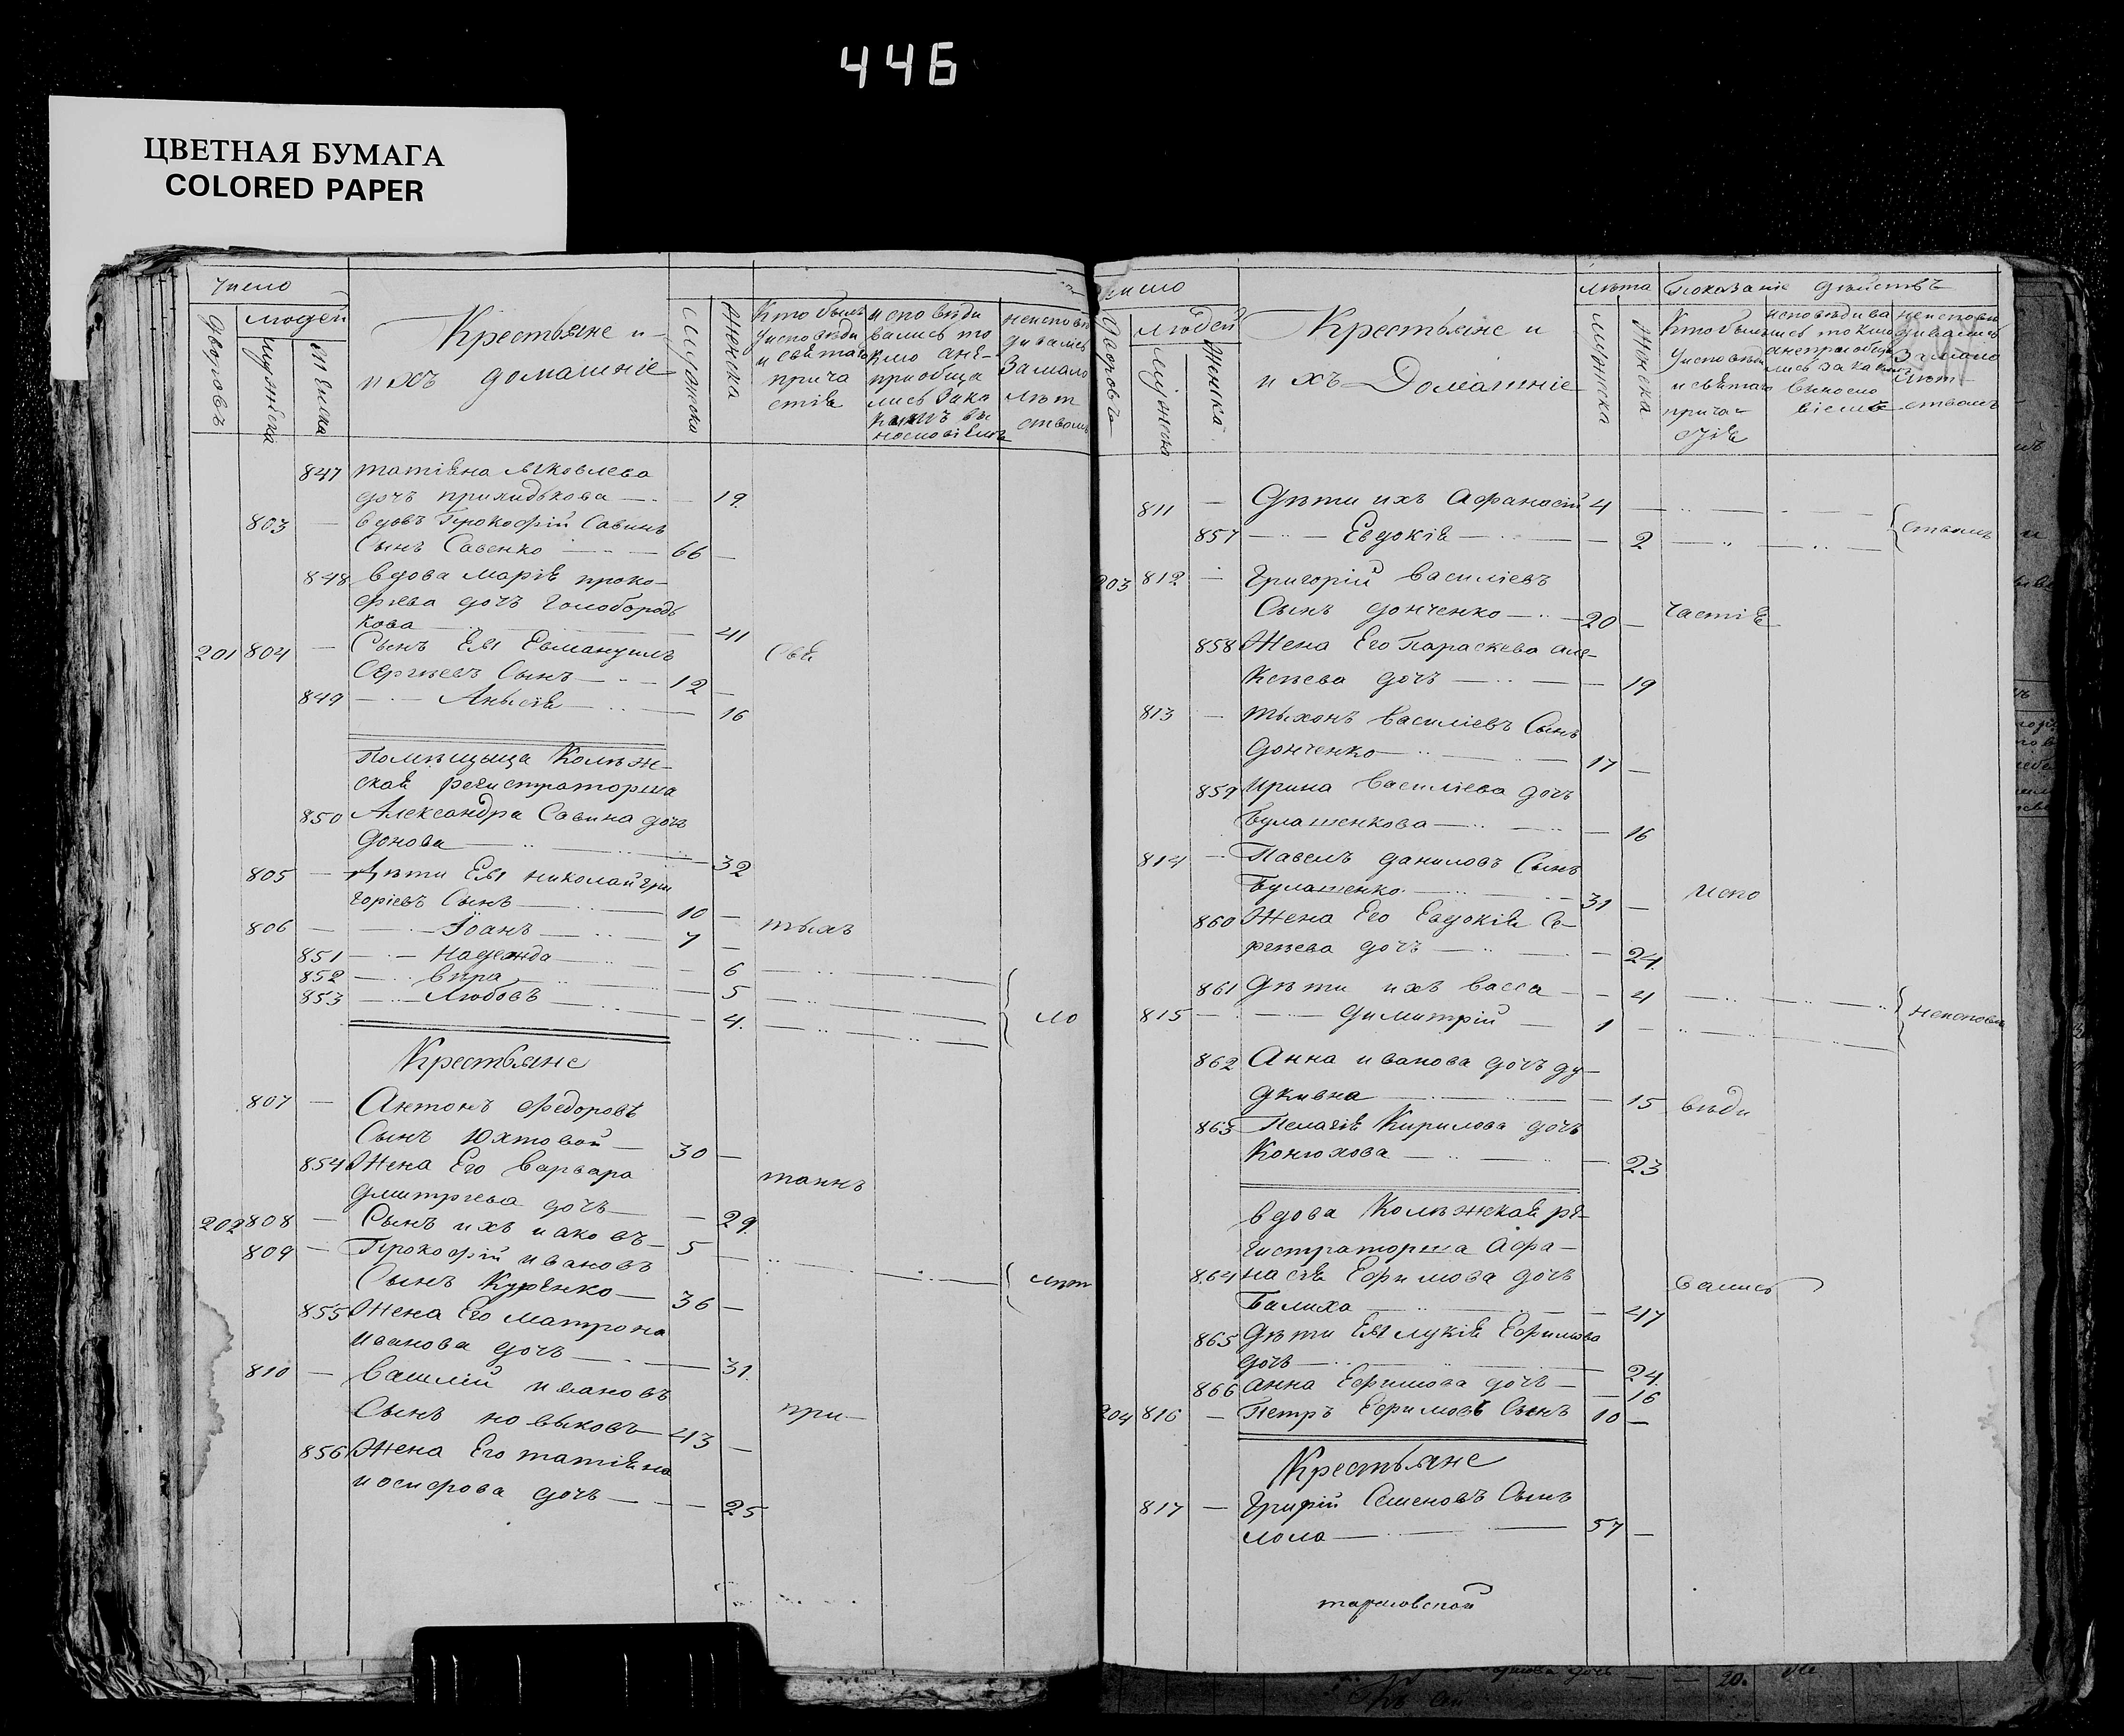 446
ЦВЕТНАЯ БУМАГА
COLORED PAPER
Число
людей
дворовъ
мужеска
женска
Крестьяне и
ихъ домашніе
Мужеска
Женска
Кто былъ
у исповѣди
и святаго
прича
стія
исповѣди
вались то
кмо а не
приобща
лись
неиспові
дивались
за мало
лѣт
ствомъ
847 Татіяна Яковлева
дочь прихидькова 19
803 вдовъ Прокофій Савинъ
Сынъ Савенко 66
848 вдова Марія проко-
фіева дочь голобородь
кова 41
201 804 Сынъ Ея Евмануилъ Свя
Сергѣевъ Сынъ 12
849 Анисія 16
Помѣщыца Колѣж-
ская регистраторша
850 Александра Савина дочь
Донова 32
805 Дѣти Ея николай гри
горіевъ Сынъ 10
806 Іоанъ 7 тыхъ
851 Надежда 6
852 Вѣра 5
853 Любовъ 4 ло
Крестьяне
807 Антонъ Федоровъ
Сынъ Юхтовой 30
854 Жена Его Варвара
Дмитріева дочь 29 таинъ
202 808 Сынъ ихъ иаковъ 5
809 Прокофій ивановъ
Сынъ Куренко 36 лѣт
855 Жена Его матрона
иванова дочь 31
810 Василій ивановъ
Сынъ новыковъ 43 при-
856 Жена Его татіяна
иосифова дочь 25
Число
людей
дворовъ
мужеска
Женска
Крестьяне и
ихъ Домашніе
лѣта
мужеска
Женска
Показаніе дѣйствъ
Кто былъ
у исповѣди
и святаго
прича-
стія
исповѣдива
лись токмо
а не приобщи
лись за каким
неиспови
дивались
за мало
лѣт
ствомъ
811 Дѣти ихъ Афанасій 4
857 Евдокія 2 ствомъ
203 812 Григорій Василіевъ
Сынъ донченко 20 частія
858 Жена Его Параскева Але-
ксѣева дочь 19
813 Тыхонъ Василіевъ Сынъ
Донченко 17
859 Ирина Василіева дочь
Булашенкова 16
814 Павелъ даниловъ Сынъ
Булашенко 31 испо
860 Жена Его Евдокія Се-
ргѣева дочь 24
861 Дѣти ихъ Васса 4
815 Димитрій 1 неиспови
862 Анна иванова дочь ду-
дкивна 15 вѣди
863 Пелагія Кирилова дочь
Конюхова 23
вдова Колѣжская ре-
гистраторша Афа-
864 насія Ефимова дочь
Балиха 47 вались
865 Дѣти Ея лукія Ефимова
дочь 24
866 Анна Ефимова дочь 16
204 816 Петръ Ефимовъ Сынъ 10
Крестьяне
817 Семеновъ Сынъ
лола 57